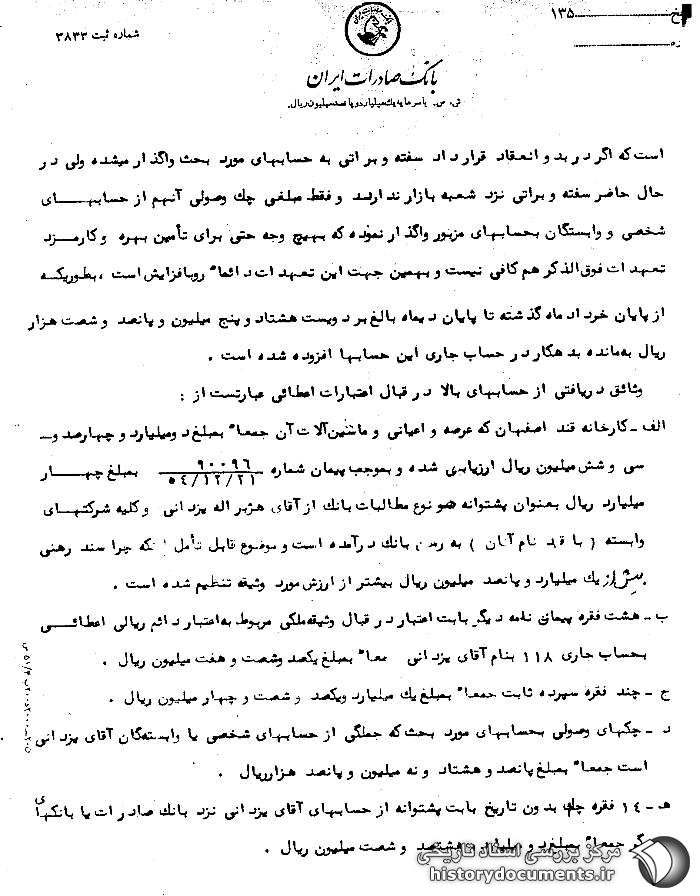 ۱۳۵
شماره ثبت ۳۸۳۳
بانک صادرات ایران
ش. س. با سرمایه یک میلیارد و پانصد میلیون ریال.
است که اگر در بد و انعقاد قرار داد سفته و براتی به حسابهای مورد بحث واگذار میشده ولی در
حال حاضر سفته و براتی نزد شعبه بازار ندارند و فقط مبلغی چک وصولی آنهم از حسابهای
شخصی و وابستگان بحسابهای مزبور واگذار نموده که بهیچ وجه حتی برای تأمین بهره و کارمزد
تعهدات فوق الذکر هم کافی نیست و بهمین جهت این تعهدات دائماً روبافزایش است ، بطوریکه
از پایان خرداد ماه گذشته تا پایان دیماه بالغ بر دویست هشتاد و پنج میلیون و پانصد و شصت هزار
ریال به مانده بدهکار در حساب جاری این حسابها افزوده شده است .
وثائق دریافتی از حسابهای بالا در قبال اعتبارات اعطائی عبارتست از :
الف ـ کارخانه قند اصفهان که عرصه و اعیانی و ماشین آلات آن جمعاً بمبلغ دو میلیارد و چهارصد و ـ
سی و شش میلیون ریال ارزیابی شده و بموجب پیمان شماره ۹۰۰۹۶ / ۵۴/۱۲/۲۱ بمبلغ چهار
میلیارد ریال بعنوان پشتوانه هر نوع مطالبات بانک از آقای هژبر اله یزدانی و کلیه شرکتهای
وابسته ( با قید نام آنان ) به رهن بانک درآمده است و موضوع قابل تأمل اینکه چرا سند رهنی
بیش از یک میلیارد و پانصد میلیون ریال بیشتر از ارزش مورد وثیقه تنظیم شده است .
ب ـ هشت فقره پیمان نامه دیگر بابت اعتبار در قبال وثیقه ملکی مربوط به اعتبار دائم ریالی اعطائی
بحساب جاری ۱۱۸ بنام آقای یزدانی جمعاً بمبلغ یکصد و شصت و هفت میلیون ریال .
ج ـ چند فقره سپرده ثابت جمعاً بمبلغ یک میلیارد و یکصد و شصت و چهار میلیون ریال .
د ـ چکهای وصولی بحسابهای مورد بحث که جملگی از حسابهای شخصی یا وابسته گان آقای یزدانی
است جمعاً بمبلغ پانصد و هشتاد و نه میلیون و پانصد هزار ریال .
هـ ـ ۱۴ فقره چک بدون تاریخ بابت پشتوانه از حسابهای آقای یزدانی نزد بانک صادرات یا بانکهای
دیگر جمعاً بمبلغ دو میلیارد و هشتصد و شصت میلیون ریال .
مرکز بررسی اسناد تاریخی
historydocuments.ir